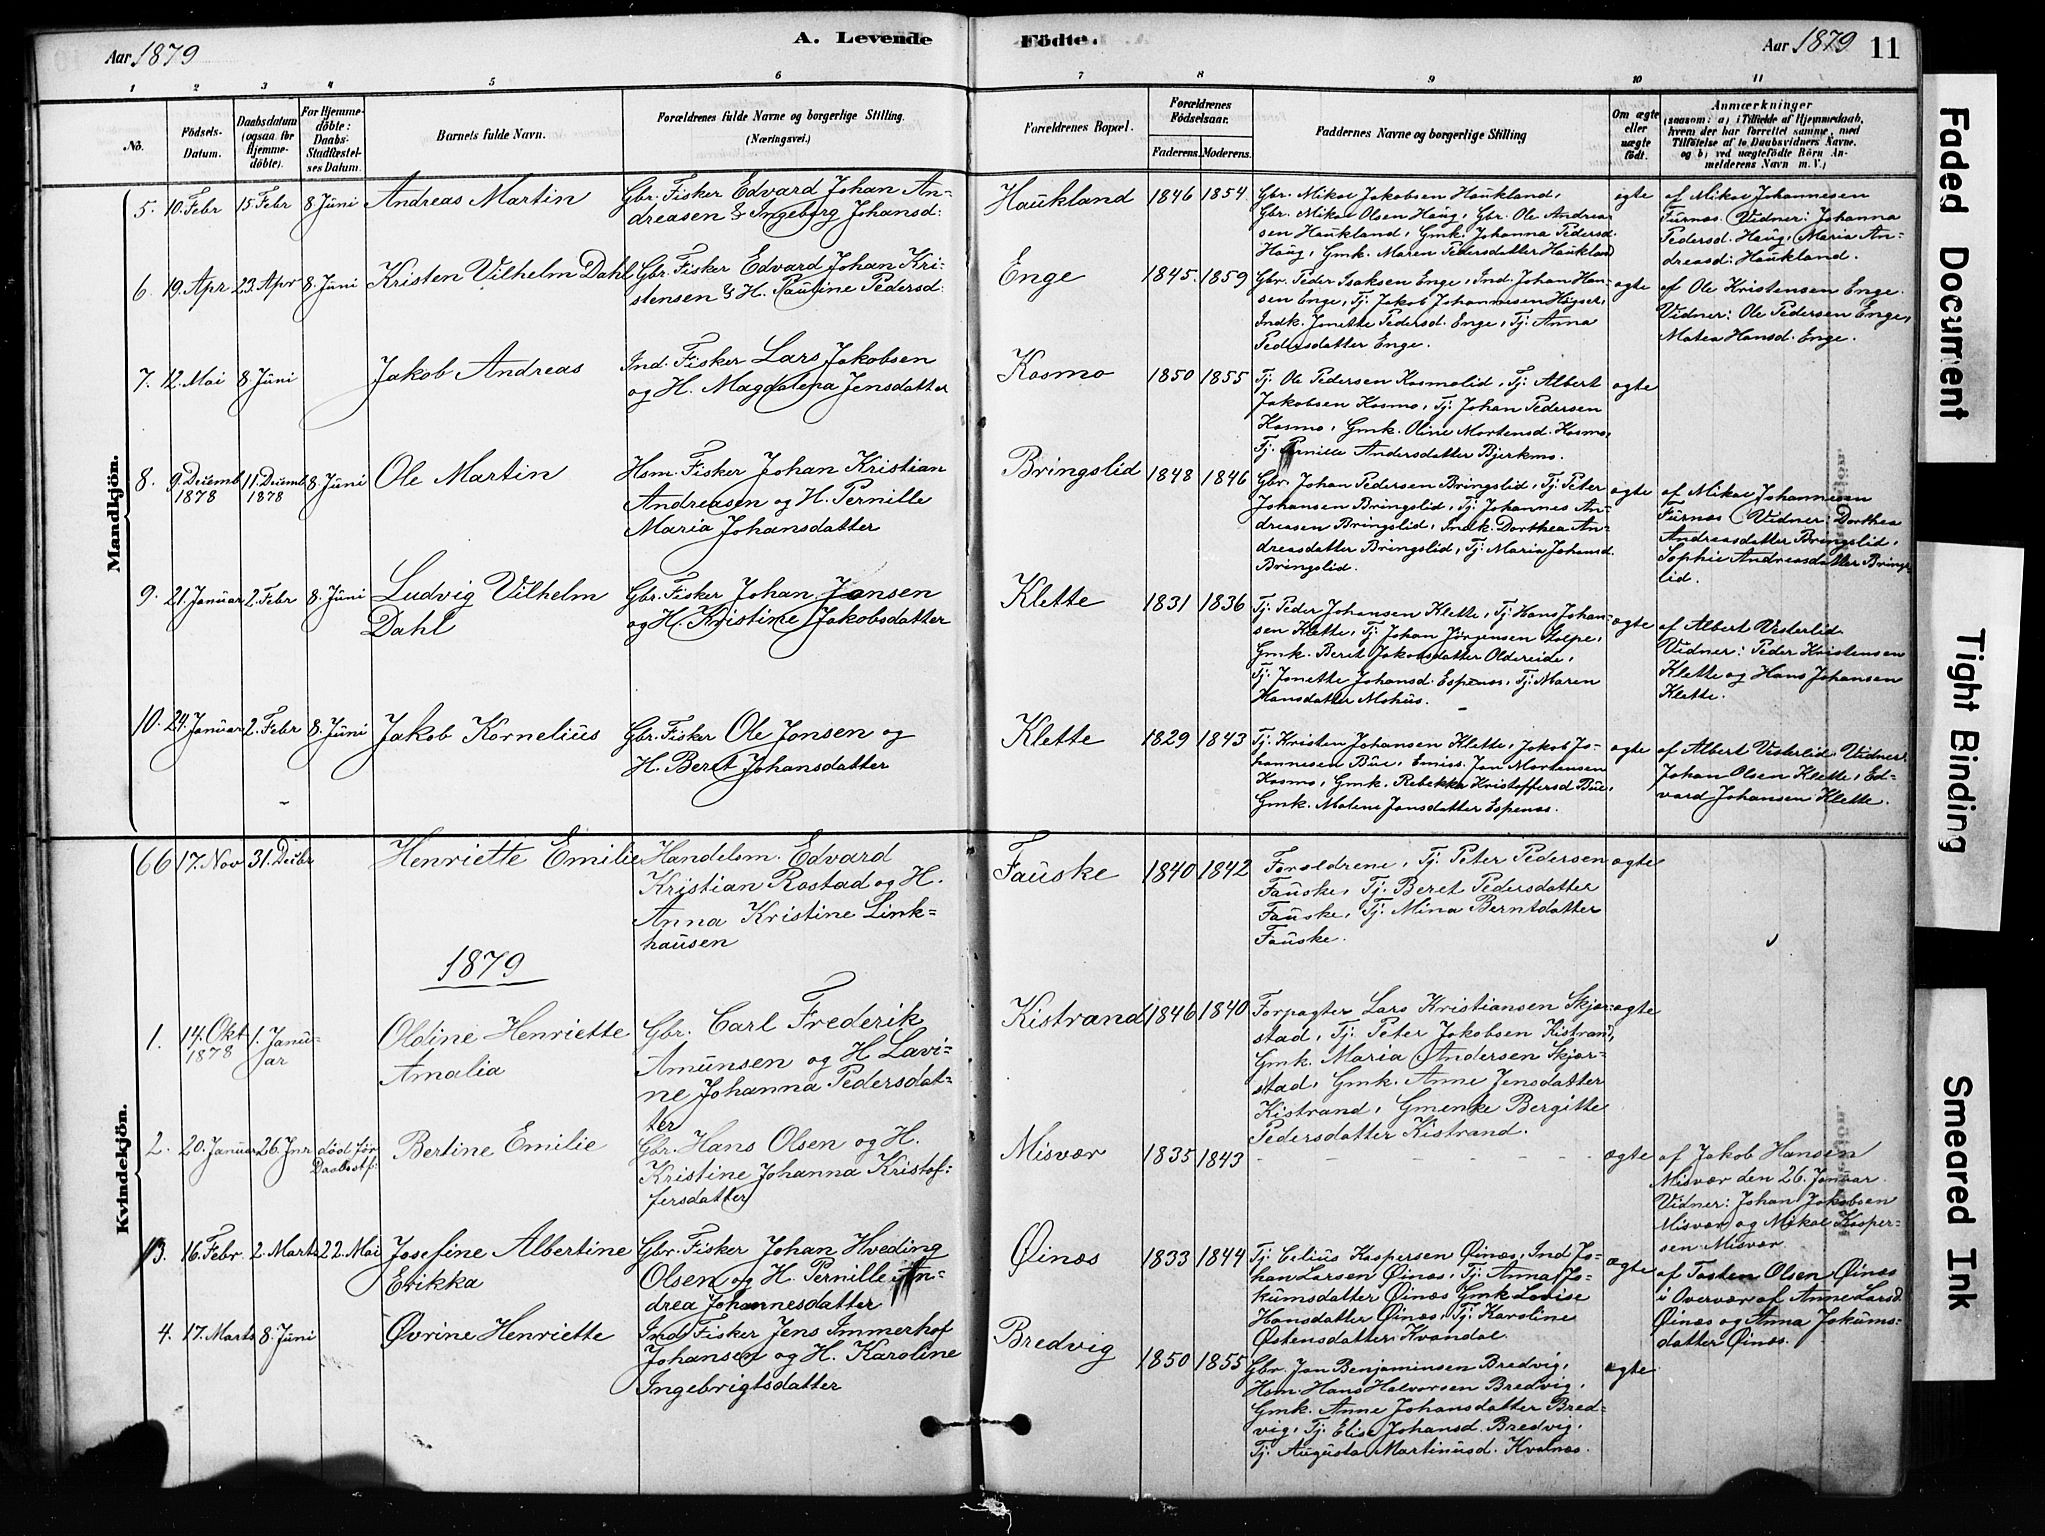 Aar 1879
A. Levende
Födte.
Aar 1879
11
1 2 3 4 5 6 7 8 9 10 11
No.
Födsels-
Datum.
Daabsdatum
(ogsaa for
Hjemme-
döbte).
For Hjemme-
döbte:
Daabs-
Stadfæstel-
ses Datum.
Barnets fulde Navn.
Forældrenes fulde Navne og borgerlige Stilling.
(Næringsvei.)
Forældrenes Bopæl.
Forældrenes
Födselsaar.
Faderens. Moderens.
Faddernes Navne og borgerlige Stilling
Om ægte
eller
uægte
födt.
Anmærkninger
(saasom: a) i Tilfælde af Hjemmedaab,
hvem der har forrettet samme, med
Tilföielse af to Daabsvidners Navne.
og b) ved uægtefödte Börn An-
melderens Navn m. V.)
Mandkjön.
5. 10. Febr 15 Febr 8 Juni Andreas Martin
Gbr. Fisker Edvard Johan An-
dreasen & Ingeborg Johansd:
Haukland 1846 1854
Gbr. Mikal Jakobsen Haukland,
Gbr. Mikal Olsen Haug, Gbr. Ole Andrea-
sen Haukland, Gmk. Johanna Pedersd.
Haug, Gmk. Maren Pedersdatter Haukland
ægte
af Mikal Johannesen
Furnæs. Vidner: Johanna
Pedersd. Haug, Maria An-
dreasd: Haukland.
6. 19. Apr 23. Apr 8. Juni Kristen Vilhelm Dahl
Gbr. Fisker Edvard Johan Kri-
stensen & H. Pauline Pedersd:
Enge 1845. 1859
Gbr. Peder Isaksen Enge, Ind. Johan Han-
sen Enge, Tj. Jakob Johannesen Høgset,
Indk. Jonette Pedersd. Enge, Tj: Anna
Pedersdatter Enge.
ægte
af Ole Kristensen Enge.
Vidner: Ole Pedersen Enge,
Matea Hansd. Enge.
7. 12. Mai 8. Juni Jakob Andreas
Ind. Fisker Lars Jakobsen
og H. Magdalena Jensdatter
Kosmo 1850 1855
Tj: Ole Pedersen Kosmolid, Tj: Albert
Jakobsen Kosmo, Tj: Johan Pedersen
Kosmo, Gmk. Oline Mortensd. Kosmo,
Tj: Pernille Andersdatter Bjerkmo.
ægte
8. 9. Decemb 1878 11. Decemb 1878 8 Juni Ole Martin
Hsm. Fisker Johan Kristian
Andreasen og H. Pernille
Maria Johansdatter
Bringslid 1848 1846
Gbr. Johan Pedersen Bringslid, Tj: Peter
Johansen Bringslid, Tj: Johannes An-
dreasen Bringslid, Indk. Dorthea An-
dreasdatter Bringslid, Tj: Maria Johansd.
Bringslid.
ægte
af Mikal Johannesen
Furnæs. Vidner: Dorthea
Andreasdatter Bringslid,
Sophie Andreasdatter Brings-
lid.
9. 21. Januar 2. Febr 8. Juni Ludvig Vilhelm
Dahl
Gbr. Fisker Johan Jonsen
og H. Kristine Jakobsdatter
Klette 1831 1836
Tj: Peder Johansen Klette, Tj: Hans Johan-
sen Klette, Tj: Johan Jørgensen Stolpe,
Gmk. Beret Jakobsdatter Oldereide,
Tj: Jonette Johansd. Espenæs, Tj: Maren
Hansdatter Mohus.
ægte
af Albert Vesterlid.
Vidner: Peder Kristensen
Klette og Hans Johansen
Klette.
10. 24. Januar 2. Febr 8. Juni Jakob Kornelius
Gbr. Fisker Ole Jonsen og
H. Beret Johansdatter
Klette 1829 1843
Tj: Kristen Johansen Klette, Jakob Jo-
hannesen Bue, Emiss. Jon Mortensen
Kosmo, Gmk. Rebekka Kristoffersd Bue,
Gmk. Malene Jonsdatter Espenæs.
ægte
af Albert Vesterlid. Vidner:
Johan Olsen Klette, Ed-
vard Johansen Klette.
Kvindekjön.
66 17. Nov 31. Decbr Henriette Emilie
Handelsm. Edvard
Kristian Rostad og H.
Anna Kristine Link-
hausen
Fauske 1840 1842
Forældrene, Tj: Peter Pedersen
Fauske, Tj: Beret Pedersdatter
Fauske, Tj: Mina Berntdatter
Fauske.
ægte
1879
1. 14. Okt 1878 1. Janu-
ar
Oldine Henriette
Amalia
Gbr. Carl Frederik
Amunsen og H Lavi-
ne Johanna Pedersdat-
ter
Kistrand 1846 1840
Forpagter Lars Kristiansen Skjær-
stad, Tj: Peter Jakobsen Kistrand,
Gmk. Maria Andersen Skjær-
stad, Gmk. Anne Jensdatter
Kistrand, Gmenke Bergitte
Pedersdatter Kistrand.
ægte
2. 20. Januar 26. Jnr død før
Daabsstf.
Bertine Emilie
Gbr. Hans Olsen og H.
Kristine Johanna Kristof-
fersdatter
Misvær 1835 1843
ægte
af Jakob Hansen
Misvær den 26. Januar.
Vidner: Johan Jakobsen
Misvær og Mikal Kasper-
sen Misvær.
3. 16. Febr. 2. Marts 22. Mai Josefine Albertine
Erikka
Gbr. Fisker Johan Hveding
Olsen og H. Pernille An-
drea Johannesdatter
Øinæs 1833 1844
Tj: Celius Kaspersen Øinæs, Ind Jo-
han Larsen Øinæs, Tj: Anna Jo-
kumsdatter Øinæs Gmk Lovise
Hansdatter Øinæs, Tj: Karoline
Østensdatter Kvændal
ægte
af Tosten Olsen Øinæs
i Overvær af Anne Larsd
Øinæs og Anna Jokums-
datter Øinæs.
4. 17. Marts 8. Juni Øvrine Henriette
Ind. Fisker Jens Immerhof
Johansen og H. Karoline
Ingebrigtsdatter
Bredvig 1850 1855
Gbr. Jon Benjaminsen Bredvig,
Hsm. Hans Halvorsen Bredvig,
Gmk. Anne Johansdatter Bred-
vig, Tj: Elise Johansd. Bredvig,
Tj: Augusta Martinusd. Kvalnæs.
ægte
Faded Document
Tight Binding
Smeared Ink